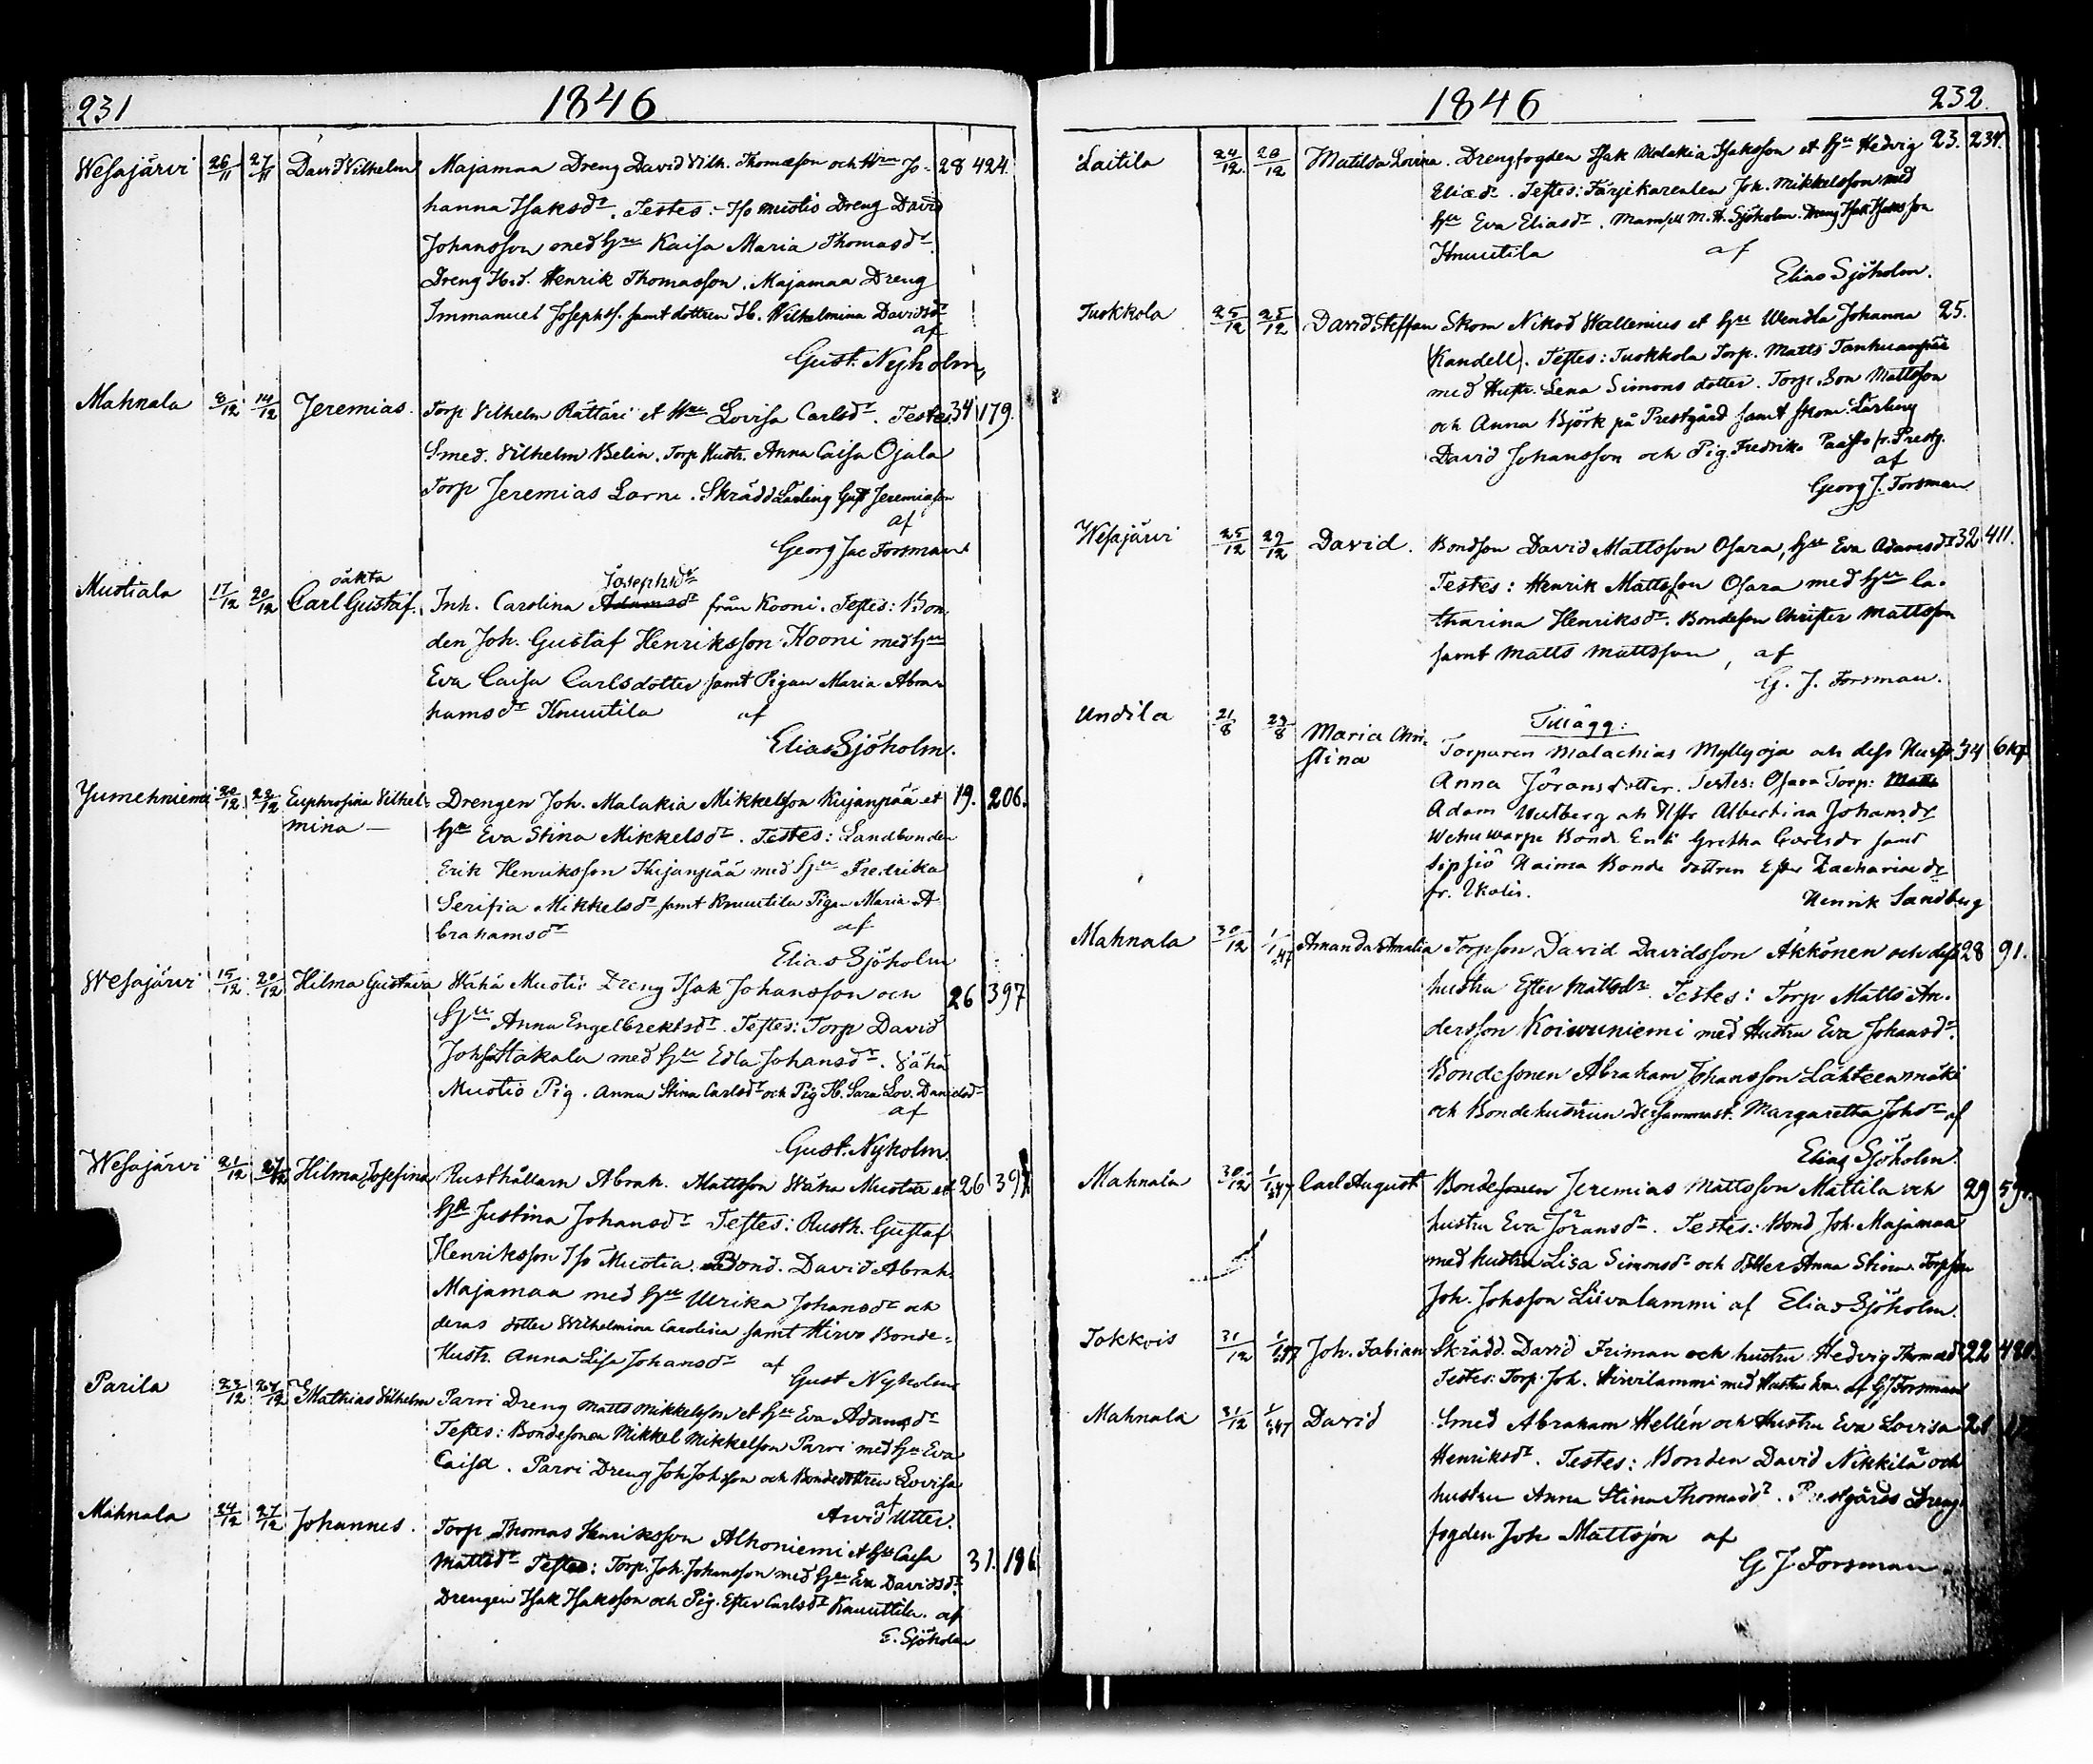 231
1846
Wesajärvi 26/11 27/11 David Vilhelm Majamaa Dreng David Vilh. Thomasson och Hru Jo- 28 424.
hanna Isaksdr. Testes: Iso Muotio Dreng David
Johansson med Hru Kaisa Maria Thomasdr
Dreng Henrik Thomasson. Majamaa Dreng
Immanuel Josephss. samt dottren Wilhelmina Davidsdr
af
Gust. Nyholm
Mahnala 8/12 14/12 Jeremias. Torp Vilhelm Rättäri et Hru Lovisa Carlsdr. Testes 34 179.
Smed. Vilhelm Belin. Torp Hustr. Anna Caisa Ojala
Torp Jeremias Larni. Skrädd Lärling Gust Jeremiasson
af
Georg Jac Forsman
Mustiala 17/12 20/12 oäkta Carl Gustaf. Inh. Carolina Adamsdr Josephsdr från Kooni. Testes: Bon
den Joh. Gustaf Henriksson Kooni med Hru
Eva Caisa Carlsdotter samt Pigan Maria Abra-
hamsdr Knuutila af
Elias Sjöholm.
Jumehniemi 20/12 22/12 Euphrosina Vilhel- Drengen Joh. Malakia Mikkelsson Kujanpää et 19. 206.
mina — Hru Eva Stina Mikkelsdr. Testes: Landbonden
Erik Henriksson Kujanpää med Hru Fredrika
Serifia Mikkelsdr samt Knuutila Pigan Maria A
brahamsdr af
Elias Sjöholm
Wesajärvi 15/12 20/12 Hilma Gustava Wähä Muotio Dreng Isak Johansson och 26 397
Hru Anna Engelbrektsdr. Testes: Torp David
Johss Hakala med Hru Edla Johansdr. Vähä
Muotio Pig. Anna Stina Carlsdr och Pig Sara Lov. Davidsdr
af
Gust. Nyholm.
Wesajärvi 21/12 27/12 Hilma Josefina Rusthållarn Abrah. Mattsson Wäha Muotia et 26 397
Hru Justina Johansdr Testes: Rusth. Gustaf
Henriksson Iso Muotia. Bond. David Abrah.
Majamaa med Hru Ulrika Johansdr och
deras dotter Wilhelmina Carolina samt Hirvo Bonde-
Hustr. Anna Lisa Johansdr af
Gust Nyholm
Parila 23/12 27/12 Mathias Vilhelm Parvi Dreng Matts Mikkelsson et Hru Eva Adamsdr
Testes: Bondesonen Mikkel Mikkelsson Parvi med Hru Eva
Caisa. Parvi Dreng Joh Johsson och Bondedottren Lovisa
af
Arvid Utter.
Mahnala 24/12 27/12 Johannes. Torp Thomas Henriksson Alhoniemi et Hru Caisa
Mattsdr Testes: Torp. Joh. Johansson med Hru Eva Davidsdr 31. 186
Drengen Isak Isaksson och Pig. Ester Carlsdr Knuuttila. af
E. Sjöholm
1846
232
Laitila 24/12 26/12 Matilda Lovina. Drengfogden Isak Malakia Isaksson et Hru Hedvig 23. 234.
Eliædr. Testes: Färjekarenlen Joh. Mikkelsson med
Hru Eva Eliasdr. Mamsell M. A. Sjöholm. Dreng Isak Isaksson
Knuutila af
Elias Sjöholm.
Tuokkola 25/12 25/12 David Steffan Skom Nikod Wallenius et Hru Wendla Johanna 25.
(Kandell). Testes: Tuokkola Torp. Matts Tanhuanpää
med Hustr. Lena Simons dotter. Torp. Son Mattsson
och Anna Björk på Prestgård samt Skom. Lärling
David Johansson och Pig. Fredrika fr. Prestg.
af
Georg J. Forsman
Wesajärvi 25/12 29/12 David. Bondson David Mattsson Osara, Hru Eva Adamsdr 32 411.
Testes: Henrik Mattsson Osara med Hru Ca-
tharina Henriksdr. Bondeson Christer Mattsson
samt Matts Mattsson, af
G. J. Forsman.
Tillägg:
Undila 21/8 23/8 Maria Chri- Torparen Malachias Myllyoja och dess Hustr. 34
stina Anna Jöransdotter. Testes: Osara Torp: Matts
Adam Wutberg och Hstr Albertina Johansdr
Wehuwarpe Bond. Enk. Gretha Carlsdr samt
Sipsiö Haima Bonde dottren Ester Zachariædr
fr. Ikalis. Henrik Sandberg
Mahnala 30/12 1/1 47 Amanda Amalia Torpson David Davidsson Äkkönen och dess 28 91.
hustru Ester Mattsdr. Testes: Torp Matts An-
dersson Koivuniemi med Hustru Eva Johansdr.
Bondesonen Abraham Johansson Lähteenmäki
och Bondehustrun dersammast. Margaretha Johsdr af
Elias Sjöholm.
Mahnala 30/12 1/1 47 Carl August Bondesonen Jeremias Mattsson Mattila och 29
hustru Eva Jöransdr. Testes: Bond Joh. Majamaa
med hustru Lisa Simonsdr och dotter Anna Stina. Torpson
Joh. Johsson Liivalammi af Elias Sjöholm.
Tokkois 31/12 1/1 47 Joh. Fabian Skrädd. David Friman och hustru Hedvig Thomædr 22 480.
Testes: Torp. Joh. Hirvilammi med Hustru Eva. af GJ Forsman
Mahnala 31/12 1/1 47 David Smed Abraham Hellén och Hustru Eva Lovisa 21
Henriksdr. Testes: Bonden David Nikkilä och
hustru Anna Stina Thomasdr. Prestgårds Dreng
fogden Joh Mattsson af
G J Forsman